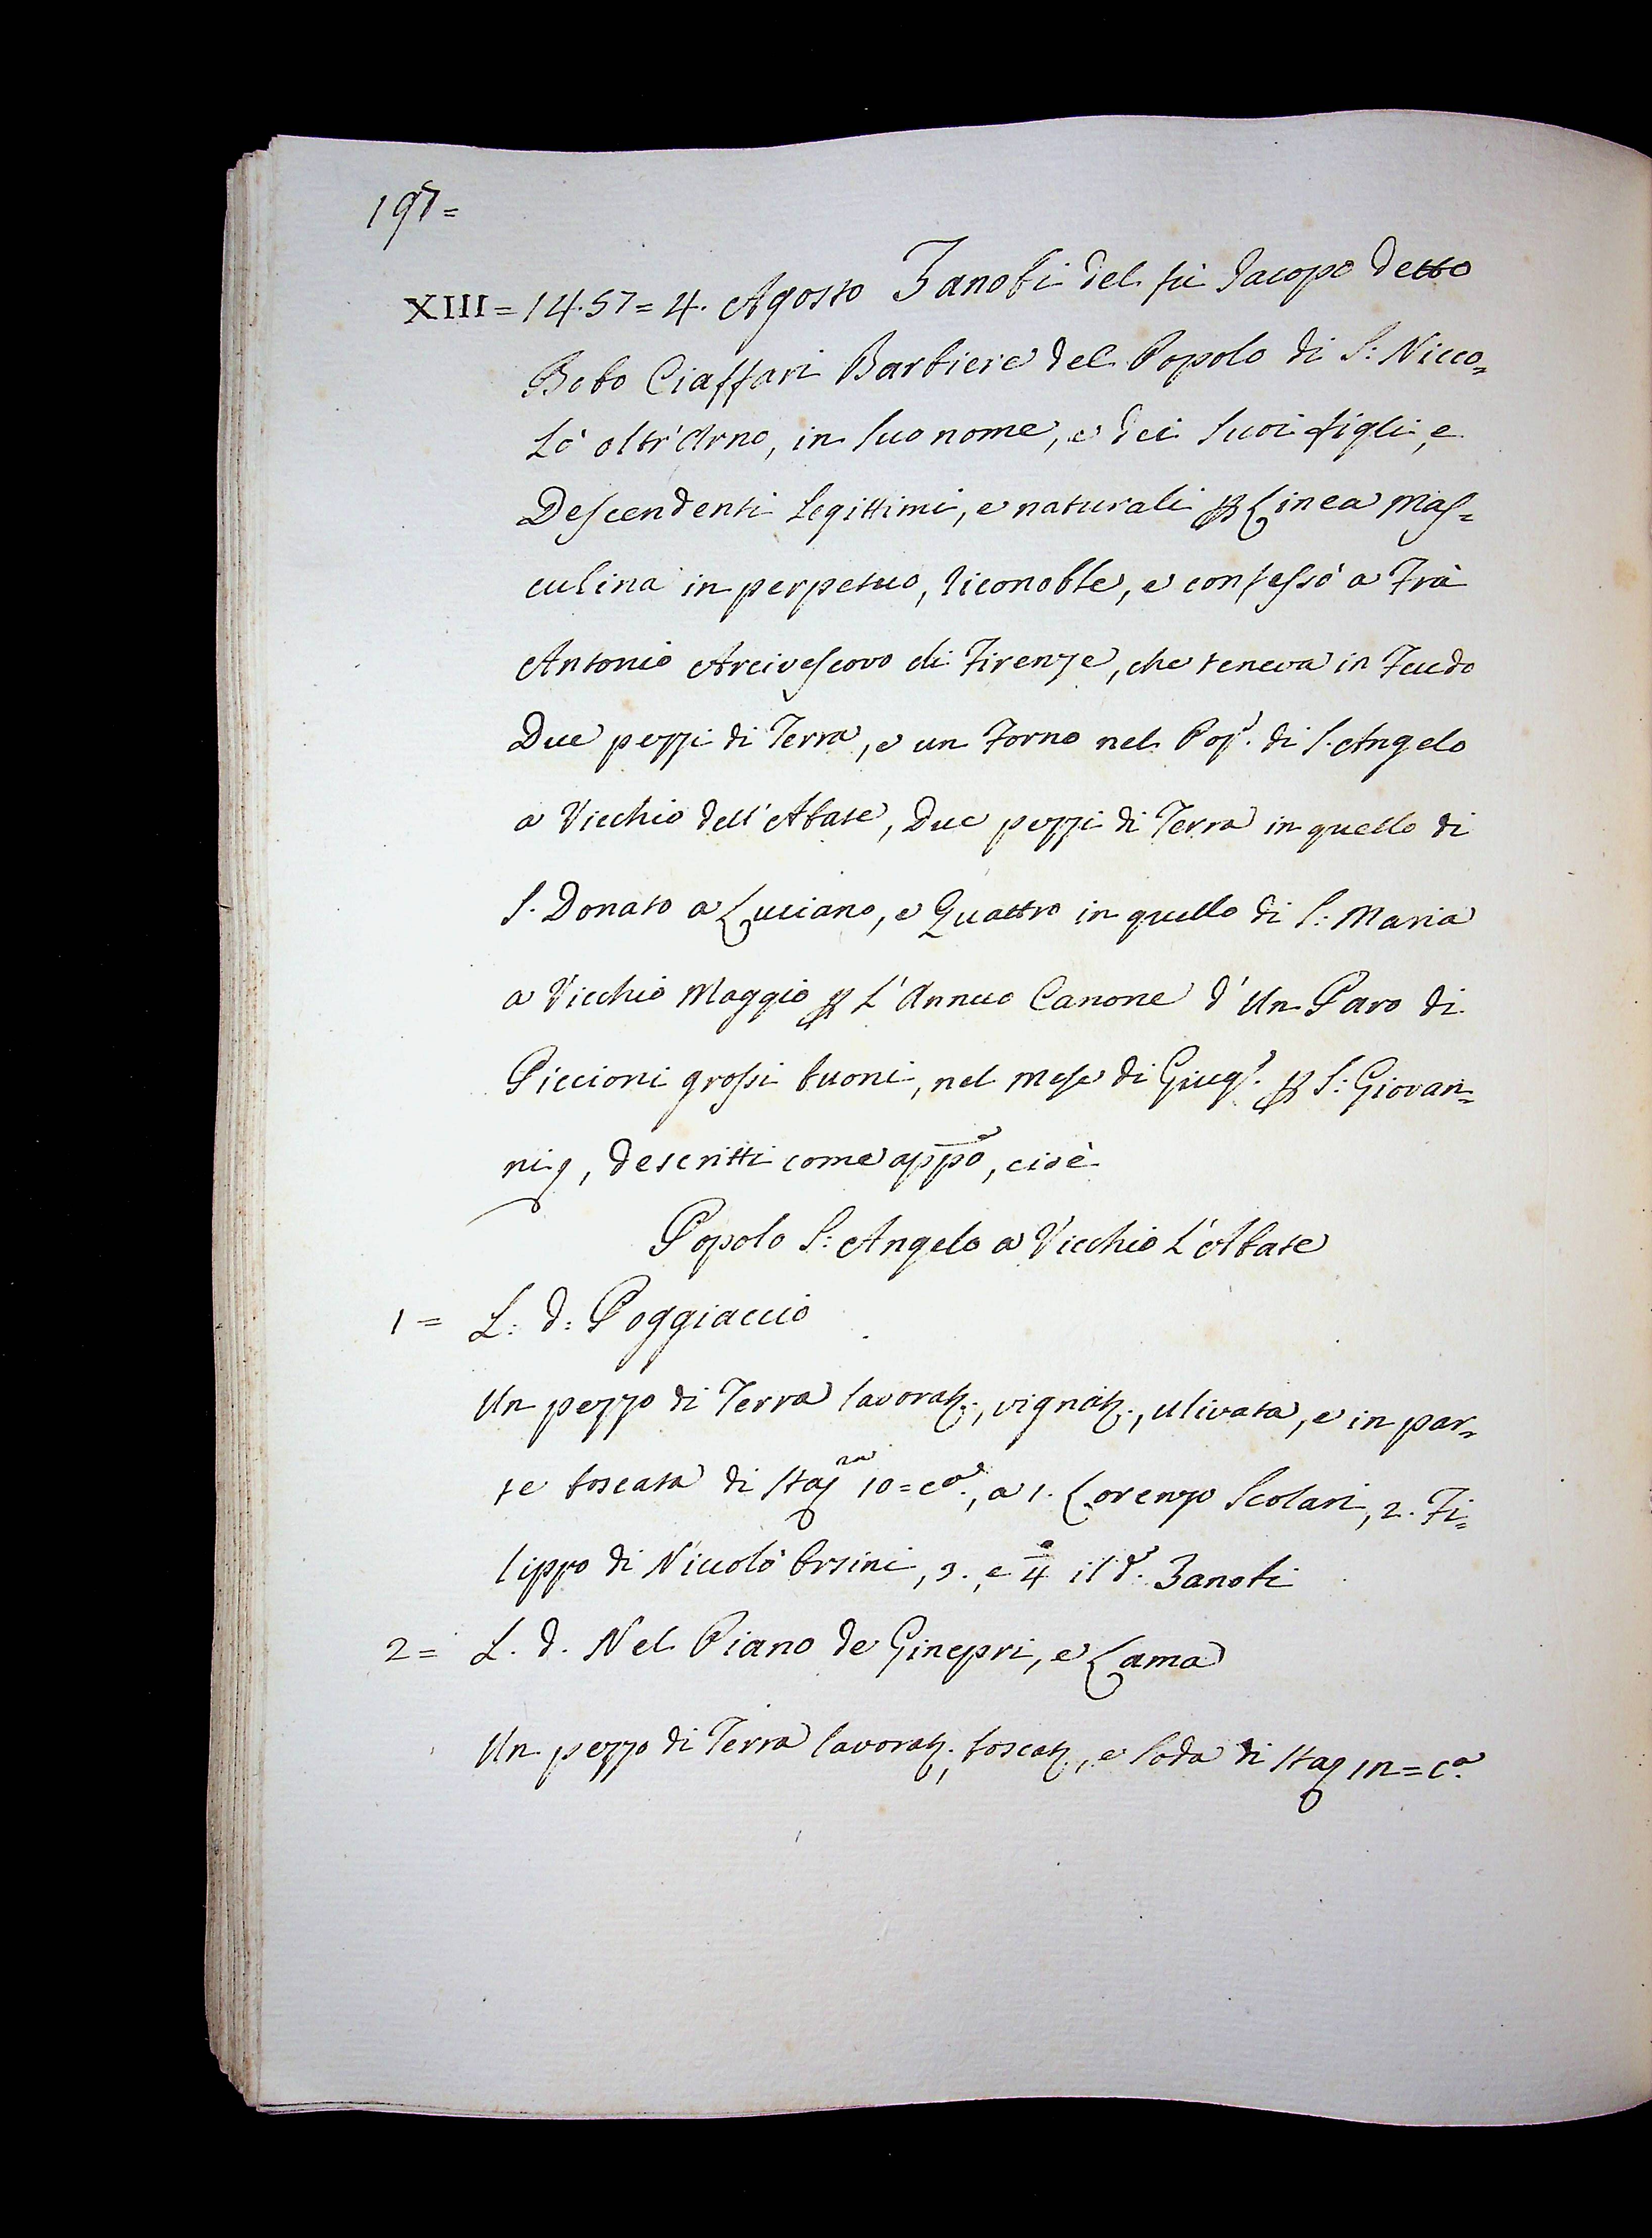 197=
XIII = 1457 = 4. Agosto Zanobi del fù Jacopo detto
Bobo Ciaffari Barbiere del Popolo di S: Nicco=
lò oltr'Arno, in suo nome, e dei suoi figli, e
Descendenti Legittimi, e naturali p Linea Mas=
culina in perpetuo, riconobbe, e confessò a Frà
Antonio Arcivescovo di Firenze, che teneva in Feudo
Due pezzi di Terra, e un Forno nel Pop.º di S. Angelo
a Vicchio dell'Abate, Due pezzi di Terra in quello di
S. Donato a Luciano, e Quattro in quello di S: Maria
a Vicchio Maggio p L'Annuo Canone d'Un Paro di
Piccioni grossi buoni, nel mese di Giugº. p S: Giovan=
ni, descritti come appº, cioè
Popolo S: Angelo a Vicchio L'Abate
1 = L: d: Poggiaccio
Un pezzo di Terra lavorat., vignat., ulivata, e in par=
te boscata di Staj.ra 10 = cª., a 1. Lorenzo Scolari, 2. Fi=
lippo di Niccolò Orsini, 3. e 4º il dº. Zanobi
2 = L. d. Nel Piano de Ginepri, e Lama
Un pezzo di Terra lavorat., boscat., e soda di Staj 12 = cª.